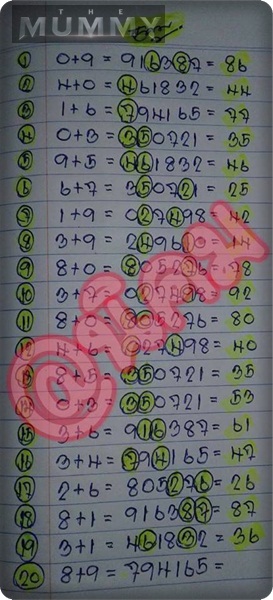 THE
MUMMY
55
1 0+9 = 916387 = 86
2 4+0 = 461832 = 44
3 1+6 = 794165 = 77
4 0+3 = 350721 = 35
5 9+5 = 461832 = 46
6 6+7 = 350721 = 25
7 1+9 = 027498 = 42
8 3+9 = 249610 = 14
9 8+0 = 805276 = 78
10 3+7 = 027498 = 92
11 8+0 = 805276 = 80
12 4+6 = 027498 = 40
13 8+5 = 350721 = 35
14 0+3 = 350721 = 53
15 3+6 = 916387 = 61
16 3+4 = 794165 = 47
17 2+6 = 805276 = 26
18 8+1 = 916387 = 87
19 3+1 = 461832 = 36
20 8+9 = 794165 =